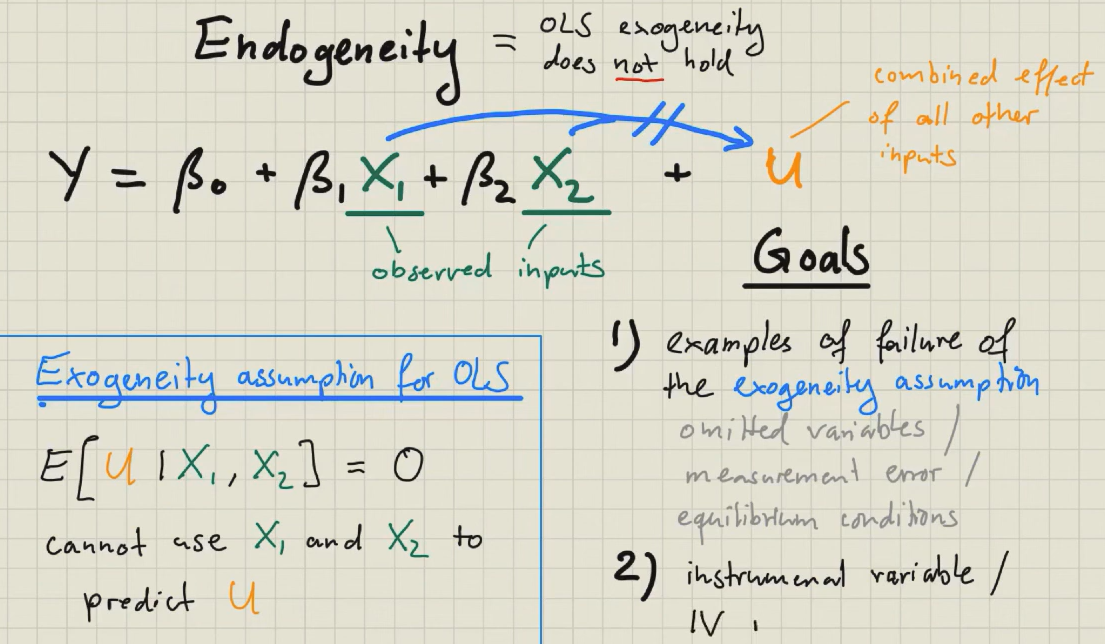 Endogeneity = OLS exogeneity
does not hold
combined effect
of all other
inputs
Y = β₀ + β₁ X₁ + β₂ X₂ + U
observed inputs
Goals
Exogeneity assumption for OLS
E[U | X₁, X₂] = 0
cannot use X₁ and X₂ to
predict U
1) examples of failure of
the exogeneity assumption
omitted variables /
measurement error /
equilibrium conditions
2) instrumental variable /
IV